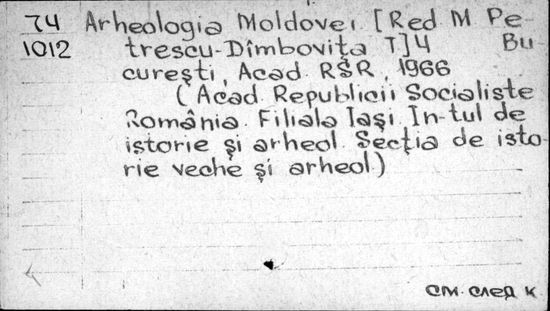 74 Arheologia Moldovei [Red M Pe-
1012 trescu-Dîmbovița T] 4 Bu
curești, Acad. RSR, 1966
(Acad. Republicii Socialiste
România. Filiala Iași. In-tul de
istorie și arheol. Secția de isto-
rie veche și arheol.)
см. след к